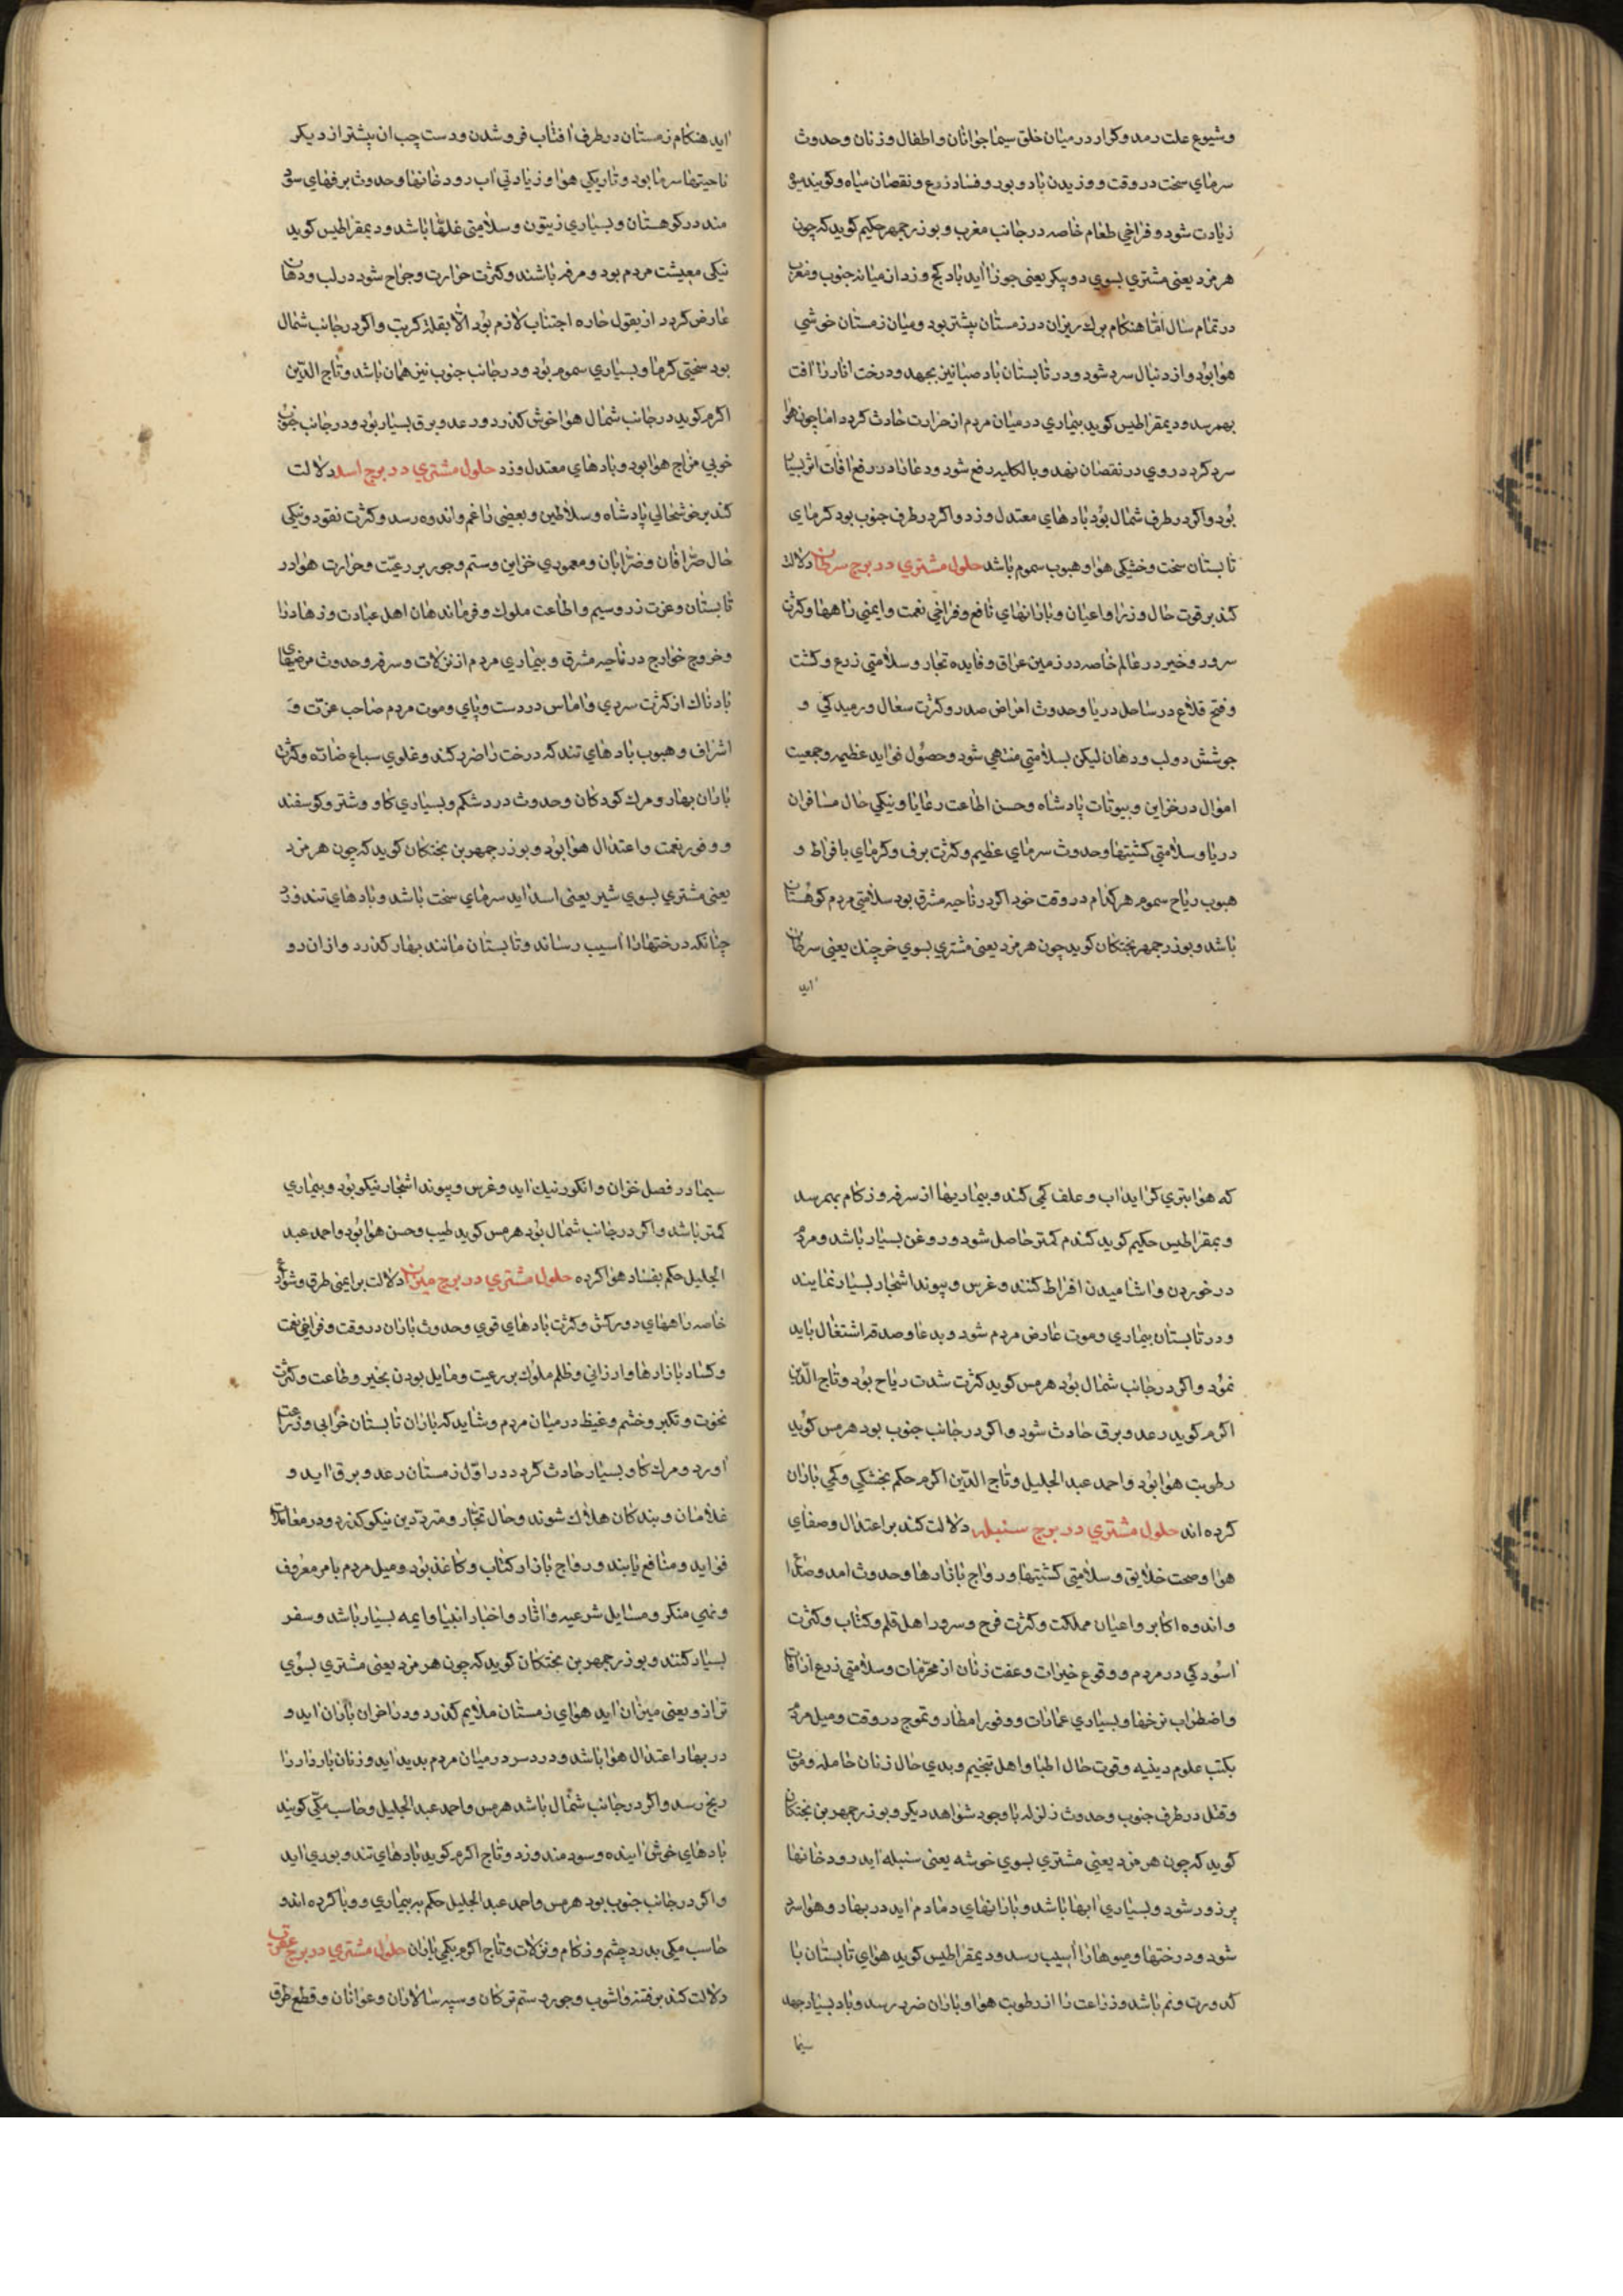 و شیوع علت رمد و کرار در میان خلق سیما جوانان و اطفال و زنان و حدوث
سرمای سخت در وقت و وزیدن باد و بود و فساد زرع و نقصان میاه و کویند میوه
زیادت شود و فراخی طعام خاصه در جانب مغرب و بوذرجمهر حکیم کوید که چون
هرمزد یعنی مشتری بسوی دو پیکر یعنی جوزا اید باد کج وزد از میانه جنوب و مغرب
در تمام سال امّا هنکام برک ریزان در زمستان بیشتر بود و میان زمستان خوشی
هوا بود و از دنبال سرد شود و در تابستان باد صبا نیز بجهد و درخت انار را افت
بهم رسد و دیمقراطیس کوید بیماری در میان مردم از حرارت حادث کردد اما چون هوا
سرد کردد روی در نقصان نهد و بالکلیه رفع شود و دعا را در رفع افات اثر بسیار
بود و اکر در طرف شمال بود بادهای معتدل وزد و اکر در طرف جنوب بود کرمای
تابستان سخت و خشکی هوا و هبوب سموم باشد حلول مشتری در برج سرطان دلالت
کند بر قوت حال وزرا و اعیان و بارانهای نافع و فراخی نعمت و ایمنی راهها و کثرت
سرور و خیر در عالم خاصه در زمین عراق و فایده تجار و سلامتی زرع و کشت
و فتح قلاع در ساحل دریا و حدوث امراض صدر و کثرت سعال و رمیدکی و
جوشش در لب و دهان لیکن بسلامتی منتهی شود و حصول فواید عظیمه و جمعیت
اموال در خزاین و بیوتات پادشاه و حسن اطاعت رعایا و نیکی حال مسافران
دریا و سلامتی کشتیها و حدوث سرمای عظیم و کثرت برف و کرمای بافراط و
هبوب ریاح سموم هر کدام در وقت خود اکر در ناحیه مشرق بود سلامتی مردم کوهستان
باشد و بوذرجمهر بختکان کوید چون هرمزد یعنی مشتری بسوی خرچنک یعنی سرطان
اید
اید هنکام زمستان در طرف افتاب فرو شدن و دست چپ ان بیشتر از دیکر
ناحیتها سرما بود و تاریکی هوا و زیادتی اب رودخانها و حدوث برفهای سود
مند در کوهستان و بسیاری زیتون و سلامتی غلها باشد و دیمقراطیس کوید
نیکی معیشت مردم بود و مرفه باشند و کثرت حرارت و جراح شود در لب و دهان
عارض کردد از بقول حاره اجتناب لازم بود الّا بقلة کربت و اکر در جانب شمال
بود سختی کرما و بسیاری سموم بود و در جانب جنوب نیز همان باشد و تاج الدّین
اکرم کوید در جانب شمال هوا خوش کذرد و رعد و برق بسیار بود و در جانب جنوب
خوبی مزاج هوا بود و بادهای معتدل وزد حلول مشتری در برج اسد دلالت
کند بر خوشحالی پادشاه و سلاطین و بعضی را غم و اندوه رسد و کثرت نقود و نیکی
حال صرّافان و ضرّابان و معموری خزاین و ستم و جور بر رعیّت و حرارت هوا در
تابستان و عزت زر و سیم و اطاعت ملوک و فرماندهان اهل عبادت و زهاد را
و خروج خوارج در ناحیه مشرق و بیماری مردم از نزلات و سرفه و حدوث مرضهای
بادناک از کثرت سردی و اماس در دست و پای و موت مردم صاحب عزّت و
اشراف و هبوب بادهای تند که درخت را ضرر کند و غلوی سباع ضارّه و کثرت
باران بهار و مرک کودکان و حدوث درد شکم و بسیاری کاو و شتر و کوسفند
و وفور نعمت و اعتدال هوا بود و بوذرجمهر بن بختکان کوید که چون هرمزد
یعنی مشتری بسوی شیر یعنی اسد اید سرمای سخت باشد و بادهای تند وزد
چنانکه درختها را اسیب رساند و تابستان مانند بهار کذرد و از ان رو
که هوا بتری کراید اب و علف کمی کند و بیماریها از سرفه و زکام بهم رسد
و بمقراطیس حکیم کوید کندم کمتر حاصل شود و روغن بسیار باشد و مردم
در خوردن و اشامیدن افراط کنند و غرس و پیوند اشجار بسیار نمایند
و در تابستان بیماری و موت عارض مردم شود و بدعا و صدقه اشتغال باید
نمود و اکر در جانب شمال بود هرمس کوید کثرت شدت ریاح بود و تاج الدّین
اکرم کوید رعد و برق حادث شود و اکر در جانب جنوب بود هرمس کوید
رطوبت هوا بود و احمد عبد الجلیل و تاج الدّین اکرم حکم بخشکی و کمی باران
کرده اند حلول مشتری در برج سنبله دلالت کند بر اعتدال و صفای
هوا و صحت خلایق و سلامتی کشتیها و رواج بازارها و حدوث امد و صداع
و اندوه اکابر و اعیان مملکت و کثرت فرح و سرور اهل قلم و کتاب و کثرت
اسودکی در مردم و وقوع خیرات و عفت زنان از محرّمات و سلامتی زرع از افات
و اضطراب نرخها و بسیاری عمارات و وفور امطار و تموج در وقت و میل مردم
بکتب علوم دینیه و قوت حال اطبا و اهل تنجیم و بدی حال زنان حامله و موت
و قتل در طرف جنوب و حدوث زلزله با وجود شواهد دیکر و بوذرجمهر بن بختکان
کوید که چون هرمزد یعنی مشتری بسوی خوشه یعنی سنبله اید رودخانها
پر زور شود و بسیاری ابها باشد و بارانهای دمادم اید در بهار و هوا سرد
شود و درختها و میوها را اسیب رسد و دیمقراطیس کوید هوای تابستان با
کدورت و نم باشد و زراعت را از رطوبت هوا و باران ضرر رسد و باد بسیار جهد
سیما
سیما در فصل خزان و انکور نیک اید و غرس و پیوند اشجار نیکو بود و بیماری
کمتر باشد و اکر در جانب شمال بود هرمس کوید طیب و حسن هوا بود و احمد عبد
الجلیل حکم بفساد هوا کرده حلول مشتری در برج میزان دلالت بر ایمنی طرق و شوارع
خاصه راههای دور کش و کثرت بادهای قوی و حدوث باران در وقت و فراخی نعمت
و کساد بازارها و ارزانی و ظلم ملوک بر رعیت و مایل بودن بخیر و طاعت و کثرت
نخوت و تکبر و خشم و غیظ در میان مردم و شاید که باران تابستان خرابی وزراعت
اورد و مرک کاو بسیار حادث کردد در اوّل زمستان رعد و برق اید و
غلامان و بندکان هلاک شوند و حال تجّار و متردّدین نیکو کذرد و در معاملات
فواید و منافع یابند و رواج بازار کتاب و کاغذ بود و میل مردم بامر معروف
و نهی منکر و مسایل شرعیه و اثار و اخبار انبیا و ایمه بسیار باشد و سفر
بسیار کنند و بوذرجمهر بن بختکان کوید که چون هرمزد یعنی مشتری بسوی
ترازو یعنی میزان اید هوای زمستان ملایم کذرد و در اخر ان باران اید و
در بهار اعتدال هوا باشد و درد سر در میان مردم بدید اید و زنان باردار را
رنج رسد و اکر در جانب شمال باشد هرمس و احمد عبد الجلیل و حاسب مکّی کویند
بادهای خوش اینده و سودمند وزد و تاج اکرم کوید بادهای تند و بوری اید
و اکر در جانب جنوب بود هرمس و احمد عبد الجلیل حکم به بیماری و وبا کرده اند و
حاسب مکی بدرد چشم و زکام و نزلات و تاج اکرم بکمی باران حلول مشتری در برج عقرب
دلالت کند بر فتنه و اشوب و جور و ستم ترکان و سپه سالاران و عوانان و قطع طرق